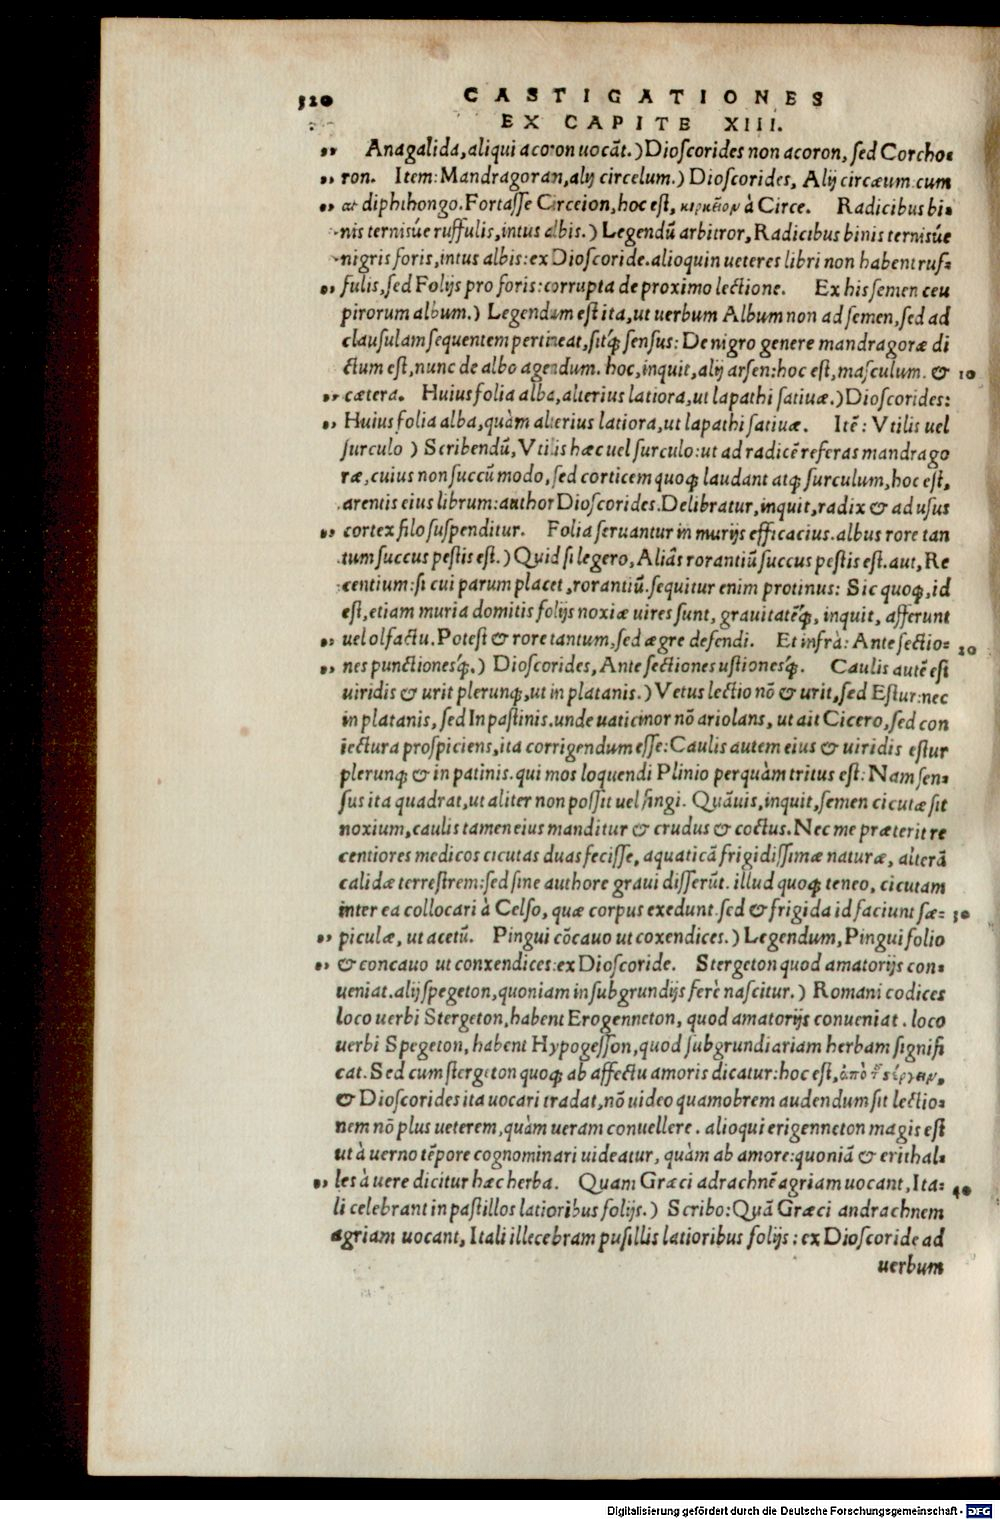 320 CASTIGATIONES
EX CAPITE XIII.
„ Anagalida, aliqui acoron uocāt.) Dioſcorides non acoron, ſed Corcho=
„ ron. Item: Mandragoran, alij circelum.) Dioſcorides, Alij circæum: cum
„ æ diphthongo. Fortaſſe Circeion, hoc eſt, à Circe. Radicibus bi=
nis ternisúe ruffulis, intus albis.) Legendū arbitror, Radicibus binis ternisúe
nigris foris, intus albis: ex Dioſcoride. alioquin ueteres libri non habent ruf=
„ fulis, ſed Folijs pro foris: corrupta de proximo lectione. Ex his ſemen ceu
pirorum album.) Legendum eſt ita, ut uerbum Album non ad ſemen, ſed ad
clauſulam ſequentem pertineat, ſitq́; ſenſus: De nigro genere mandragoræ di
ctum eſt, nunc de albo agendum. hoc, inquit, alij arſen: hoc eſt, maſculum. & 10
„ cætera. Huius folia alba, alterius latiora, ut lapathi ſatiuæ.) Dioſcorides:
„ Huius folia alba, quàm alterius latiora, ut lapathi ſatiuæ. Itē: Vtilis uel
ſurculo ) Scribendū, Vtilis hæc uel ſurculo: ut ad radicē referas mandrago
ræ, cuius non ſuccū modo, ſed corticem quoq; laudant atq; ſurculum, hoc eſt,
arentis eius librum: author Dioſcorides. Delibratur, inquit, radix & ad uſus
„ cortex filo ſuſpenditur. Folia ſeruantur in murijs efficacius. albus rore tan
tum ſuccus peſtis eſt.) Quid ſi legero, Aliâs rorantiū ſuccus peſtis eſt. aut, Re
centium: ſi cui parum placet, rorantiū. ſequitur enim protinus: Sic quoq;, id
eſt, etiam muria domitis folijs noxiæ uires ſunt, grauitatēq́;, inquit, afferunt
„ uel olfactu. Poteſt & rore tantum, ſed ægre defendi. Et infrà: Ante ſectio= 20
„ nes punctionesq́;.) Dioſcorides, Ante ſectiones uſtionesq́;. Caulis autē eſt
uiridis & urit plerunq;, ut in platanis.) Vetus lectio nō & urit, ſed Eſtur: nec
in platanis, ſed In paſtinis. unde uaticinor nō ariolans, ut ait Cicero, ſed con
iectura proſpiciens, ita corrigendum eſſe: Caulis autem eius & uiridis eſtur
plerunq; & in patinis. qui mos loquendi Plinio perquàm tritus eſt: Nam ſen=
ſus ita quadrat, ut aliter non poſſit uel fingi. Quāuis, inquit, ſemen cicutæ ſit
noxium, caulis tamen eius manditur & crudus & coctus. Nec me præterit re
centiores medicos cicutas duas feciſſe, aquaticā frigidiſſimæ naturæ, alterā
calidæ terreſtrem: ſed ſine authore graui diſſerūt. illud quoq; teneo, cicutam
inter ea collocari à Celſo, quæ corpus exedunt. ſed & frigida id faciunt ſæ= 30
„ piculæ, ut acetū. Pingui cōcauo ut coxendices.) Legendum, Pingui folio
„ & concauo ut conxendices: ex Dioſcoride. Stergeton quod amatorijs con=
ueniat. alij ſpegeton, quoniam in ſubgrundijs ferè naſcitur.) Romani codices
loco uerbi Stergeton, habent Erogenneton, quod amatorijs conueniat. loco
uerbi Spegeton, habent Hypogeſſon, quod ſubgrundiariam herbam ſignifi
cat. Sed cum ſtergeton quoq; ab affectu amoris dicatur: hoc eſt, ἀπὸ
& Dioſcorides ita uocari tradat, nō uideo quamobrem audendum ſit lectio=
nem nō plus ueterem, quàm ueram conuellere. alioqui erigenneton magis eſt
ut à uerno tēpore cognominari uideatur, quàm ab amore: quoniā & erithal=
„ les à uere dicitur hæc herba. Quam Græci adrachnē agriam uocant, Ita= 40
li celebrant in paſtillos latioribus folijs.) Scribo: Quā Græci andrachnem
agriam uocant, Itali illecebram puſillis latioribus folijs: ex Dioſcoride ad
uerbum
Digitalisierung gefördert durch die Deutsche Forschungsgemeinschaft - DFG